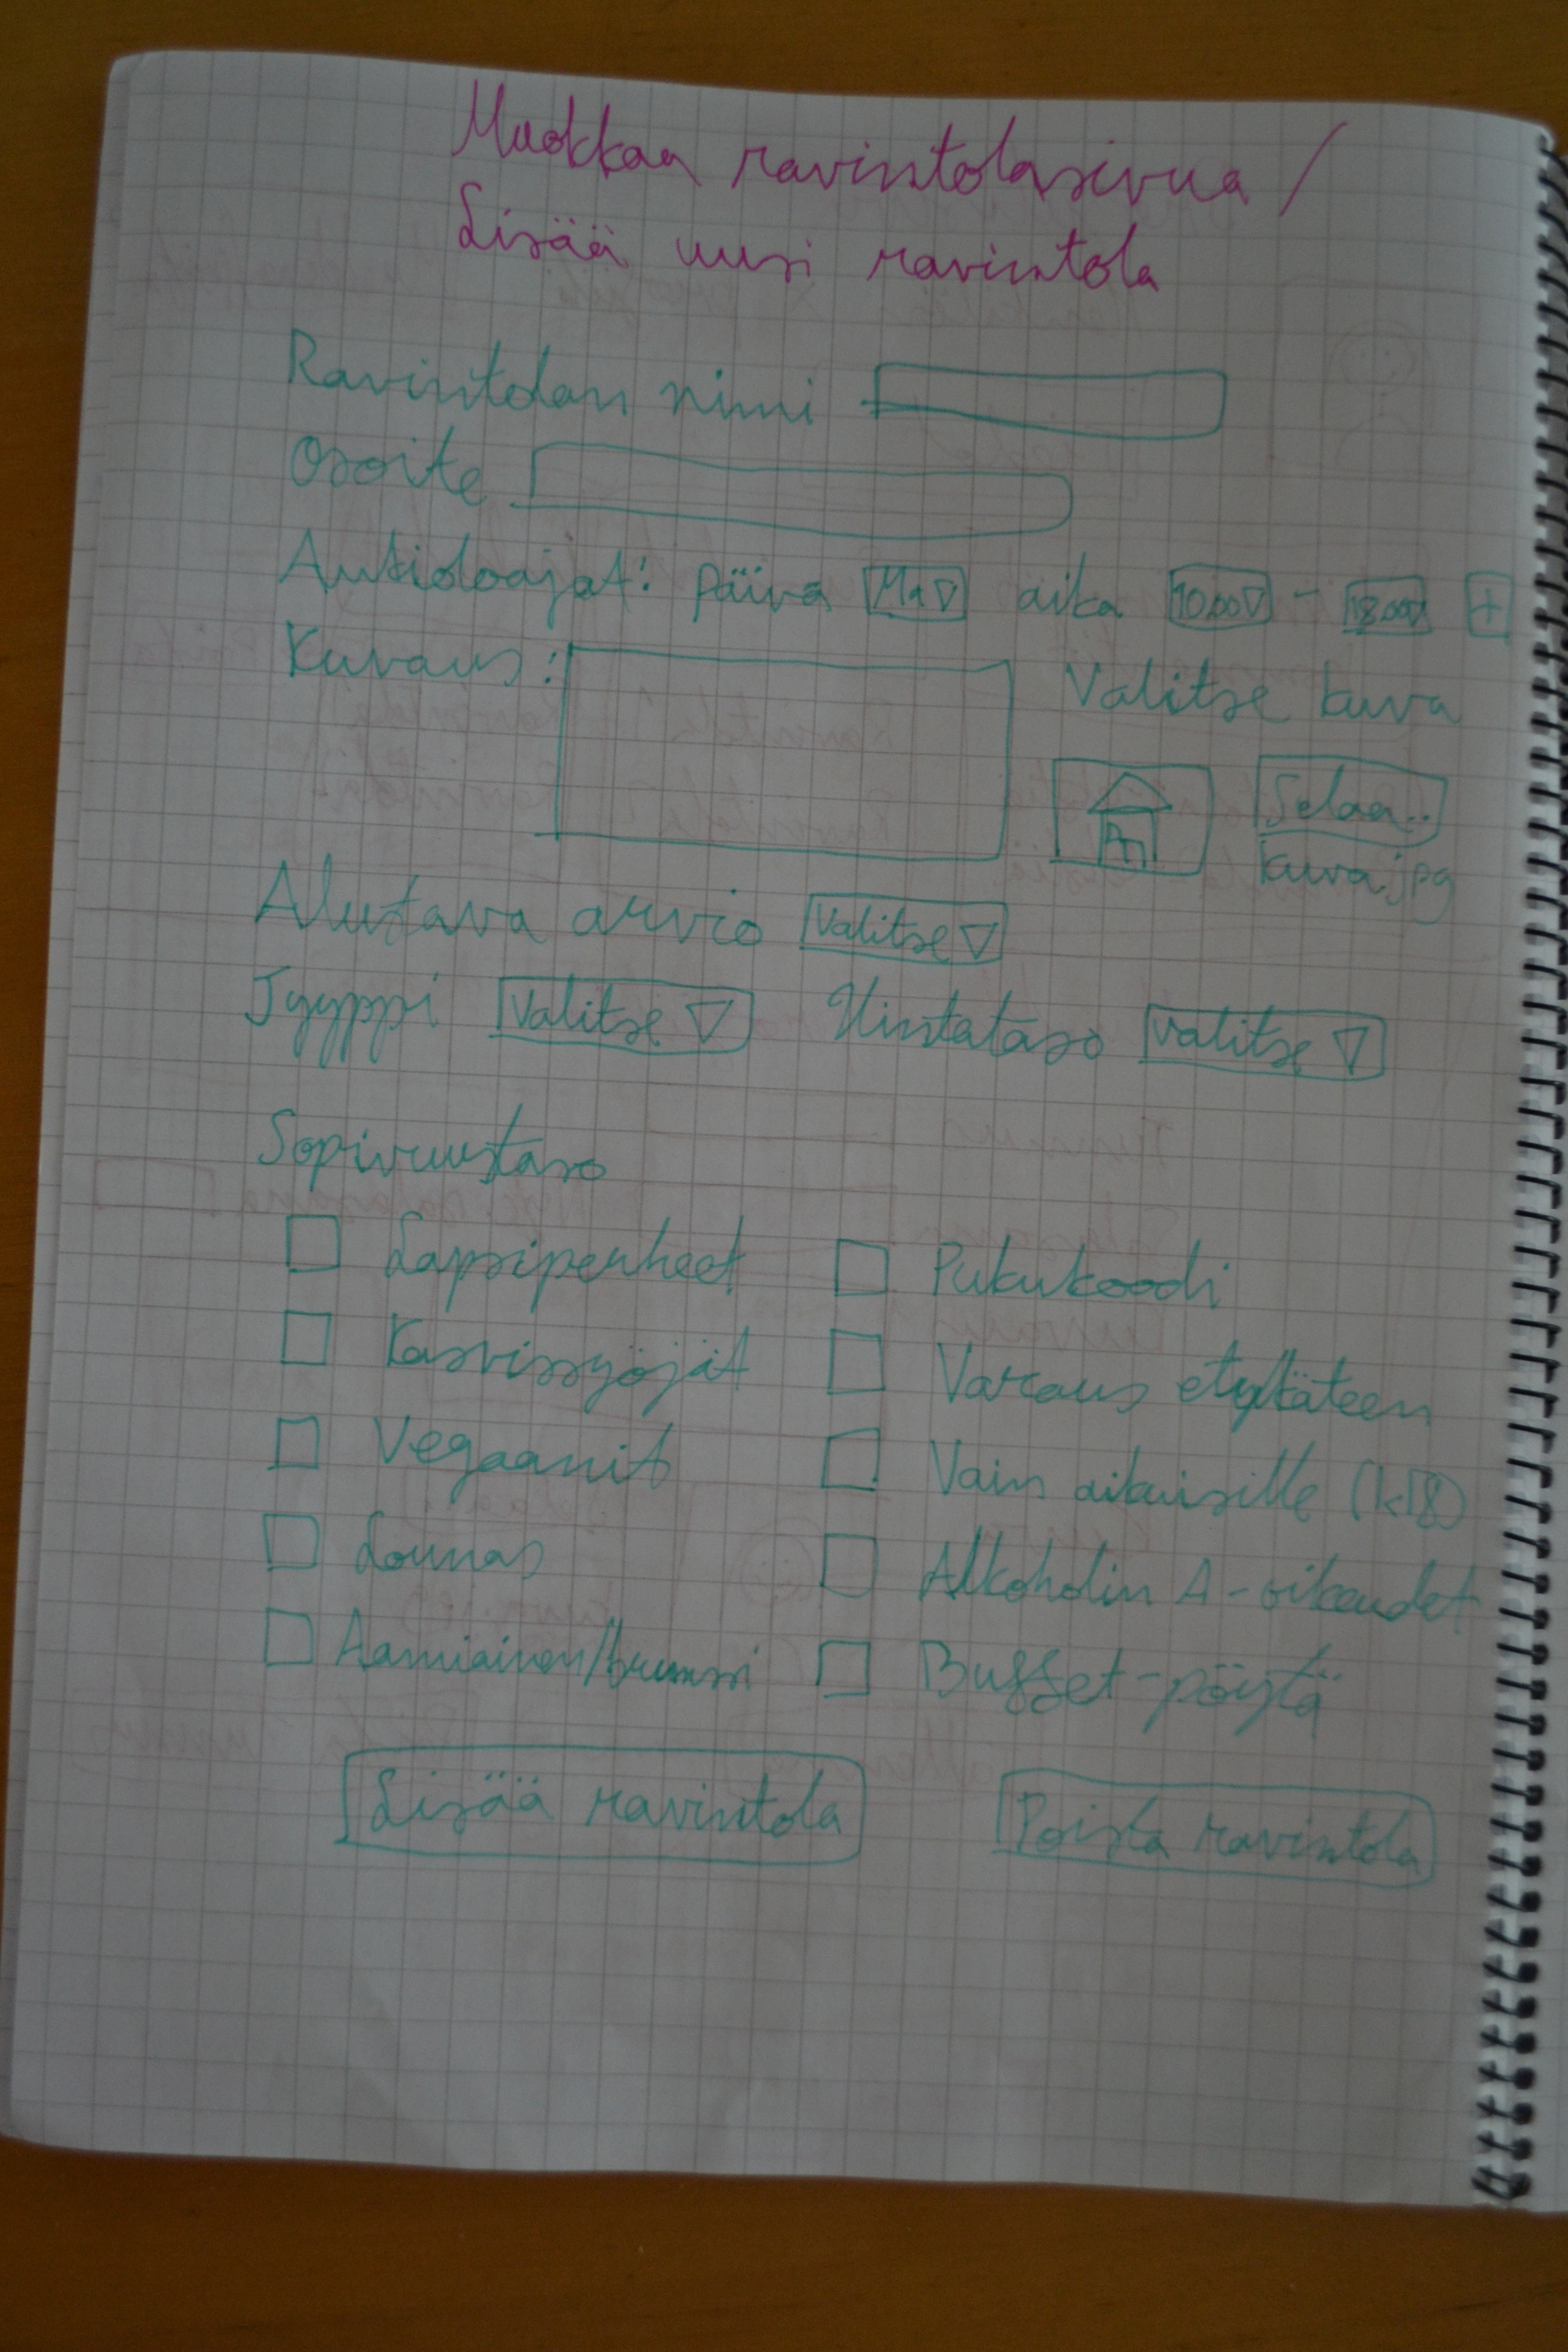 Muokkaa ravintolasivua /
Lisää uusi ravintola
Ravintolan nimi
Osoite
Aukioloajat: päivä Ma aika 10.00 - 18.00 +
Kuvaus: Valitse kuva
Selaa..
kuva.jpg
Alustava arvio Valitse
Tyyppi Valitse Hintataso Valitse
Sopivuustaso
Lapsiperheet Pukukoodi
Kasvissyöjät Varaus etukäteen
Vegaanit Vain aikuisille (k18)
Lounas Alkoholin A-oikeudet
Aamiainen/brunssi Buffet-pöytä
Lisää ravintola Poista ravintola